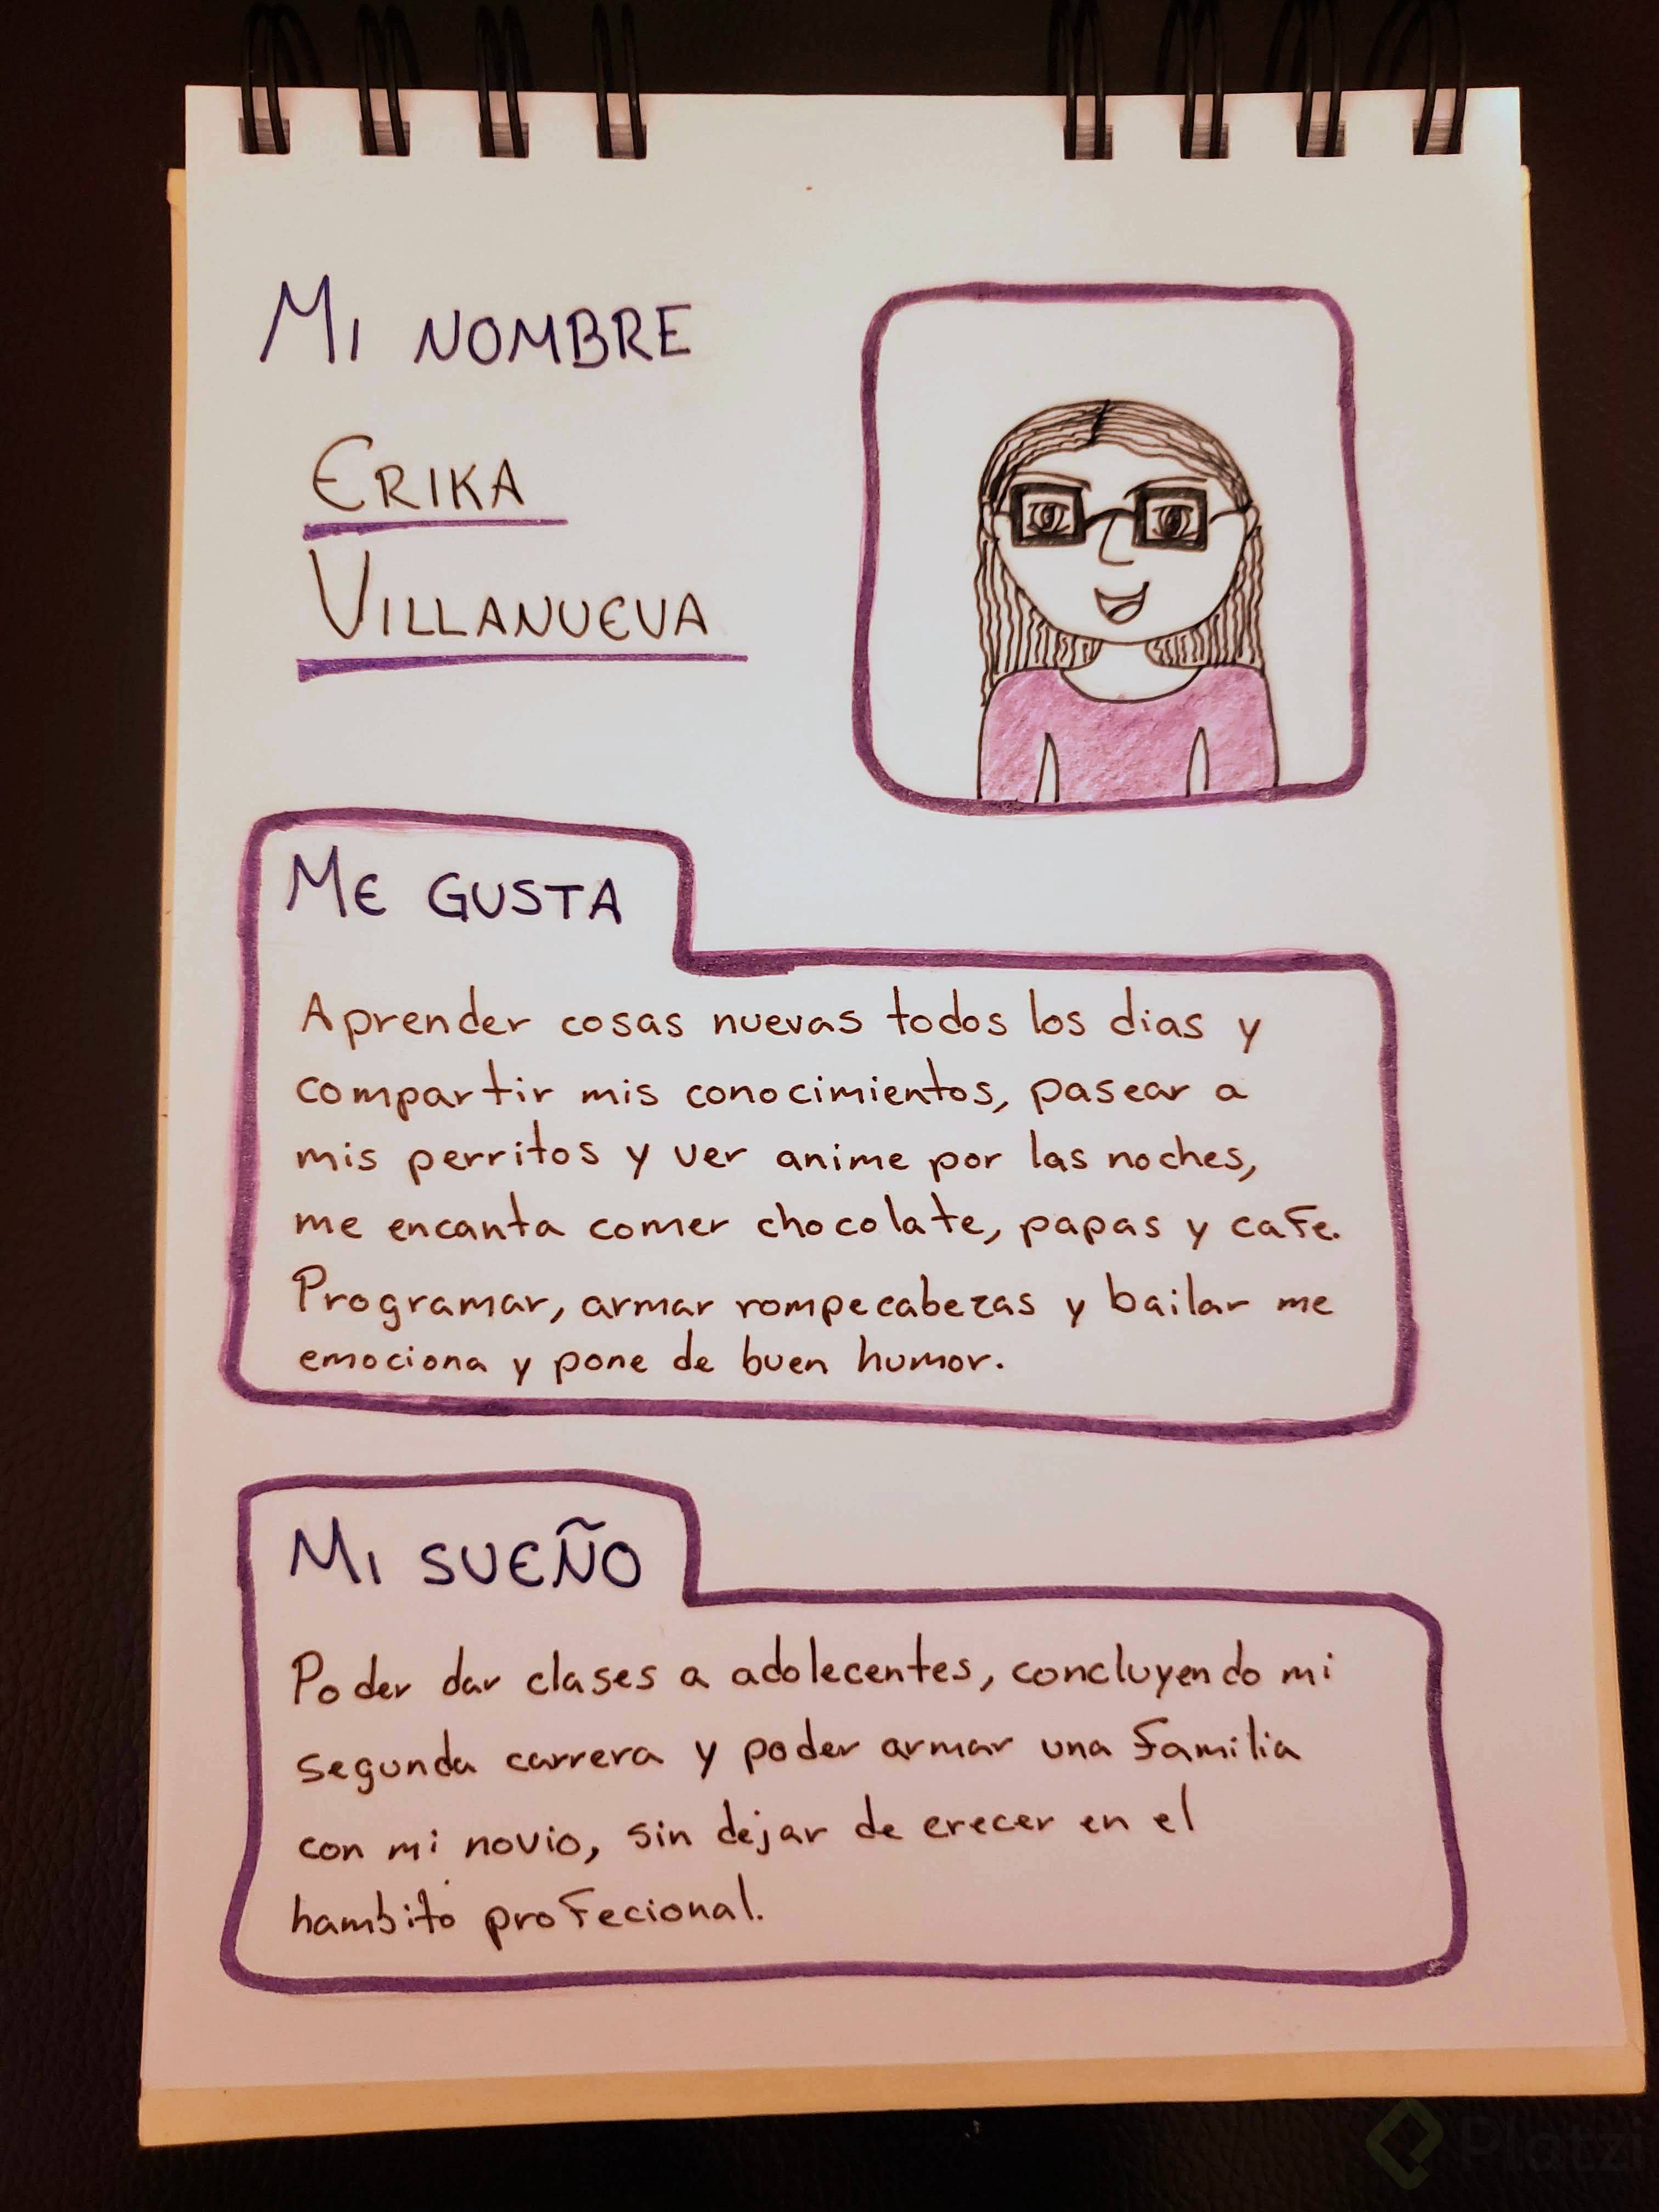 MI NOMBRE
ERIKA
VILLANUEVA
ME GUSTA
Aprender cosas nuevas todos los dias y
compartir mis conocimientos, pasear a
mis perritos y ver anime por las noches,
me encanta comer chocolate, papas y cafe.
Programar, armar rompecabezas y bailar me
emociona y pone de buen humor.
MI SUEÑO
Poder dar clases a adolecentes, concluyendo mi
segunda carrera y poder armar una familia
con mi novio, sin dejar de crecer en el
hambito profecional.
Platzi